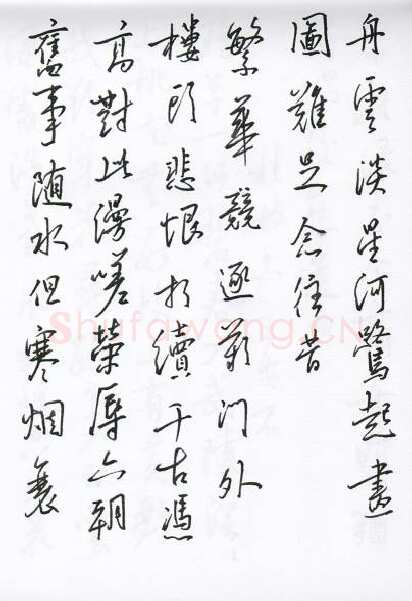 舟雲淡星河鷺起畫
圖難足念往昔
繁華競逐嘆門外
樓頭悲恨相續千古馮
高對此漫嗟榮辱六朝
舊事随水但寒烟衰
Shufawang.CN